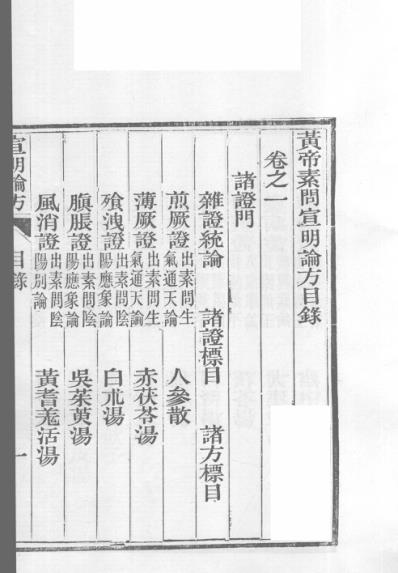 黃帝素問宣明論方目錄
卷之一
諸證門
雜證統論 諸證標目 諸方標目
煎厥證出素問生氣通天論 人參散
薄厥證出素問生氣通天論 赤茯苓湯
飱洩證出素問陰陽應象論 白朮湯
䐜脹證出素問陰陽應象論 吳茱萸湯
風消證出素問陰陽別論 黃耆羗活湯
宣明論方 目錄 一